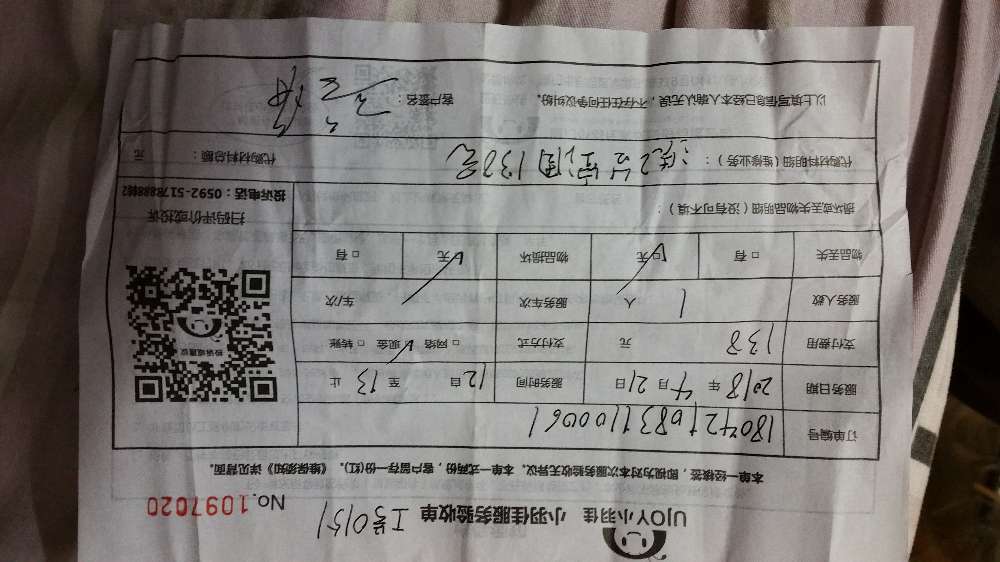 UJOY小羽佳 小羽佳服务验收单 工号0151
No.1097020
本单一经核签，即视为对本次服务验收无异议。本单一式两份，客户留存一份(红)。《维保须知》详见背面。
订单编号
服务日期 2018 年 4 月 21 日 服务时间 12 自 至 13 止
支付费用 138 元 支付方式 □ 网络 ☑ 现金 □ 转账
服务人数 1 人 服务车次 车/次
物品丢失 □ 有 ☑ 无 物品损坏 ☑ 无 □ 有
扫码评价或投诉
投诉电话：0592-5178888转2
损坏或丢失物品明细（没有可不填）：
代购材料明细（维修业务）： 138元
代购材料总额： 元
以上填写信息已经本人确认无误，不存在任何争议纠纷。 客户签名：